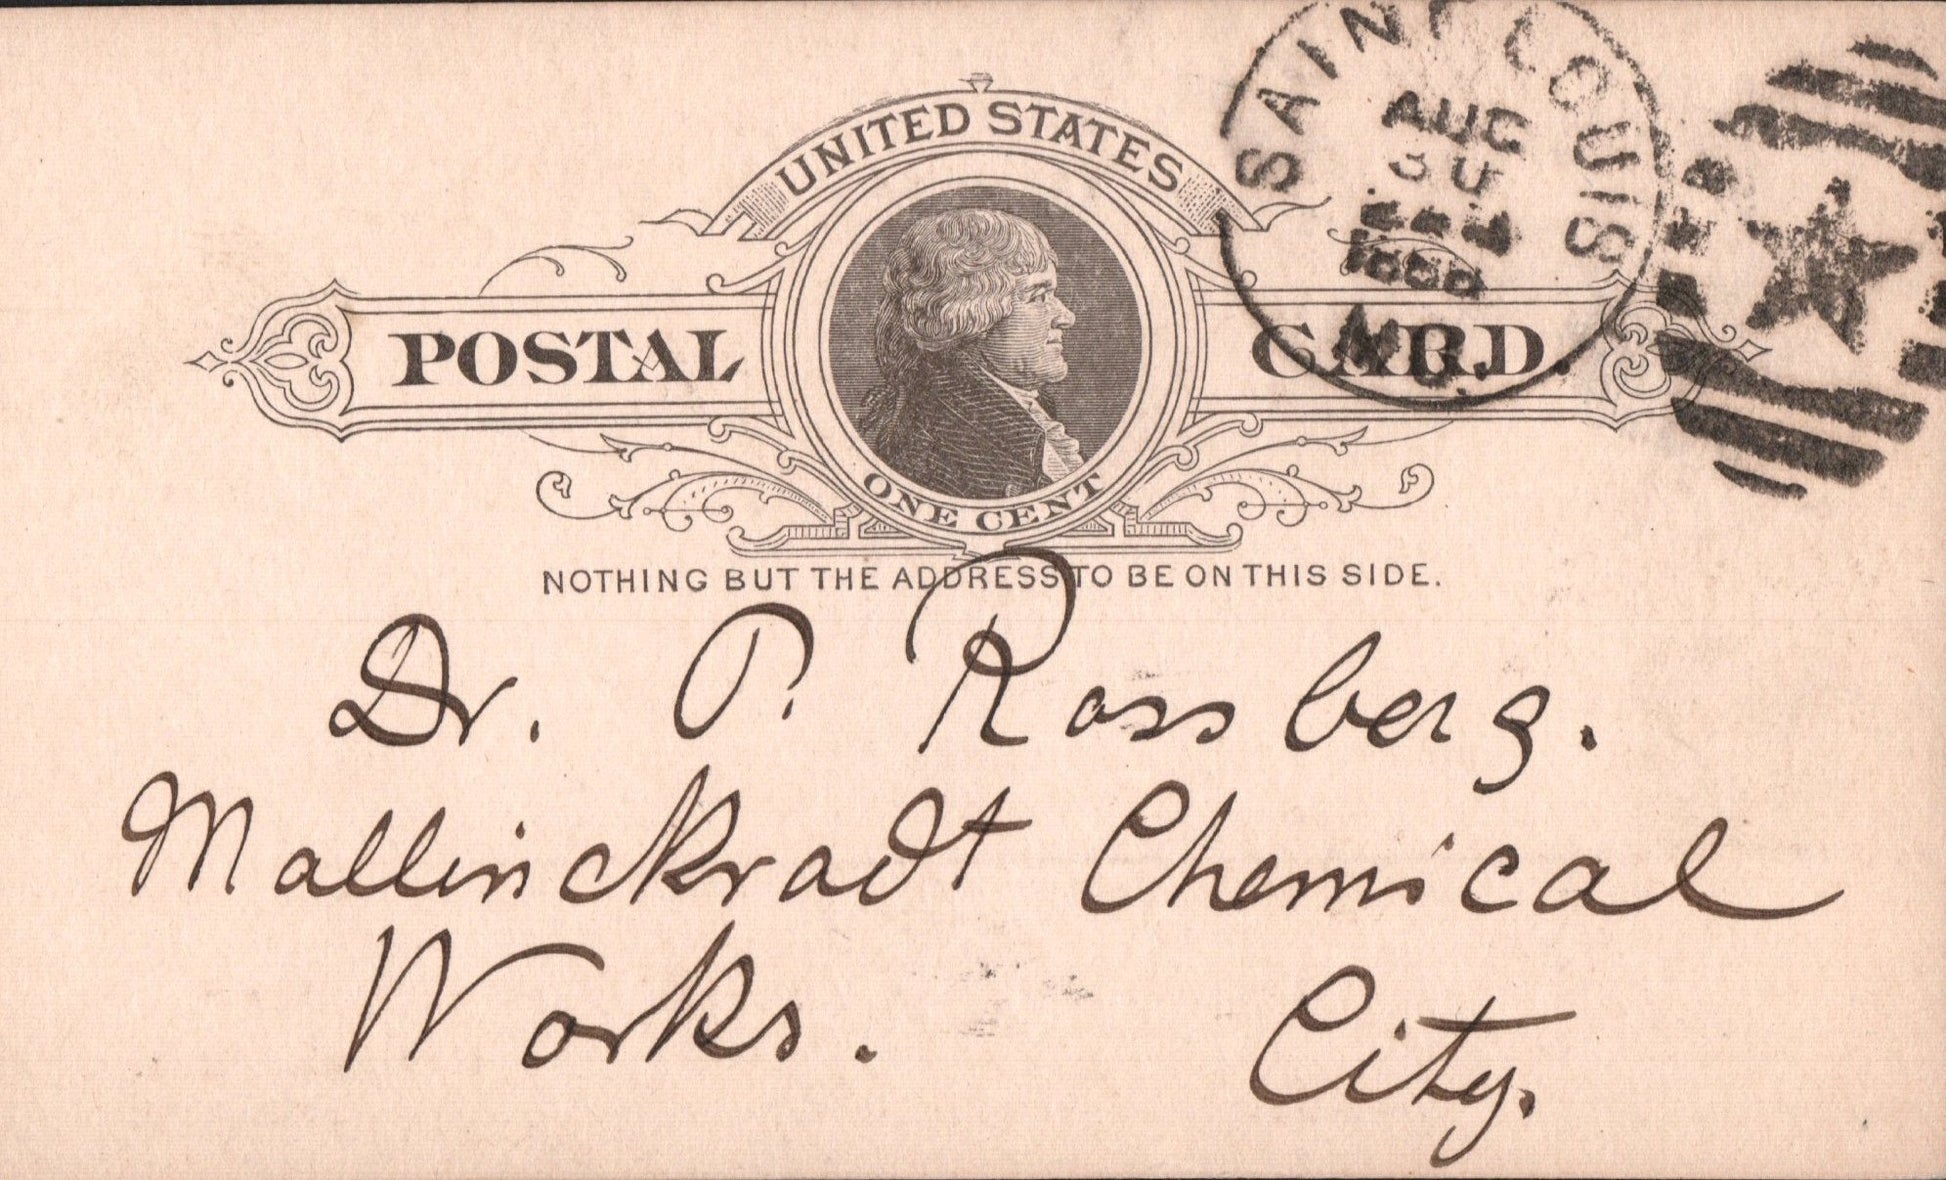 UNITED STATES
POSTAL CARD.
ONE CENT
NOTHING BUT THE ADDRESS TO BE ON THIS SIDE.
SAINT LOUIS
AUG
MO.
Dr. P. Rassberg.
Mallinckradt Chemical
Works. City.